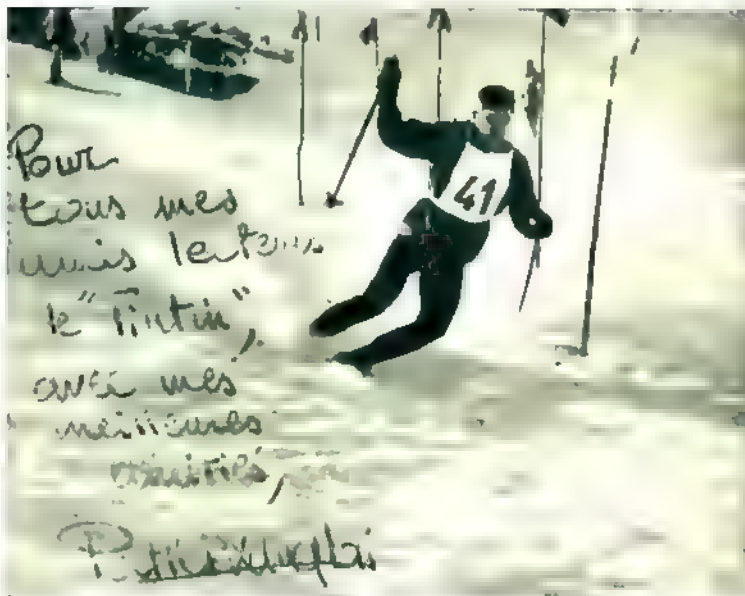 Pour
tous mes
amis lecteurs
de "Tintin",
avec mes
meilleures
amitiés,
41